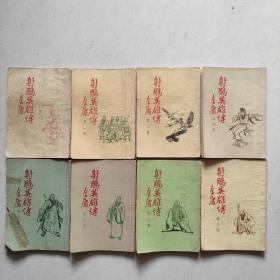 射鵰英雄傳
金庸
射鵰英雄傳
金庸
射鵰英雄傳
金庸
射鵰英雄傳
金庸
射鵰英雄傳
金庸
射鵰英雄傳
金庸
射鵰英雄傳
金庸
射鵰英雄傳
金庸